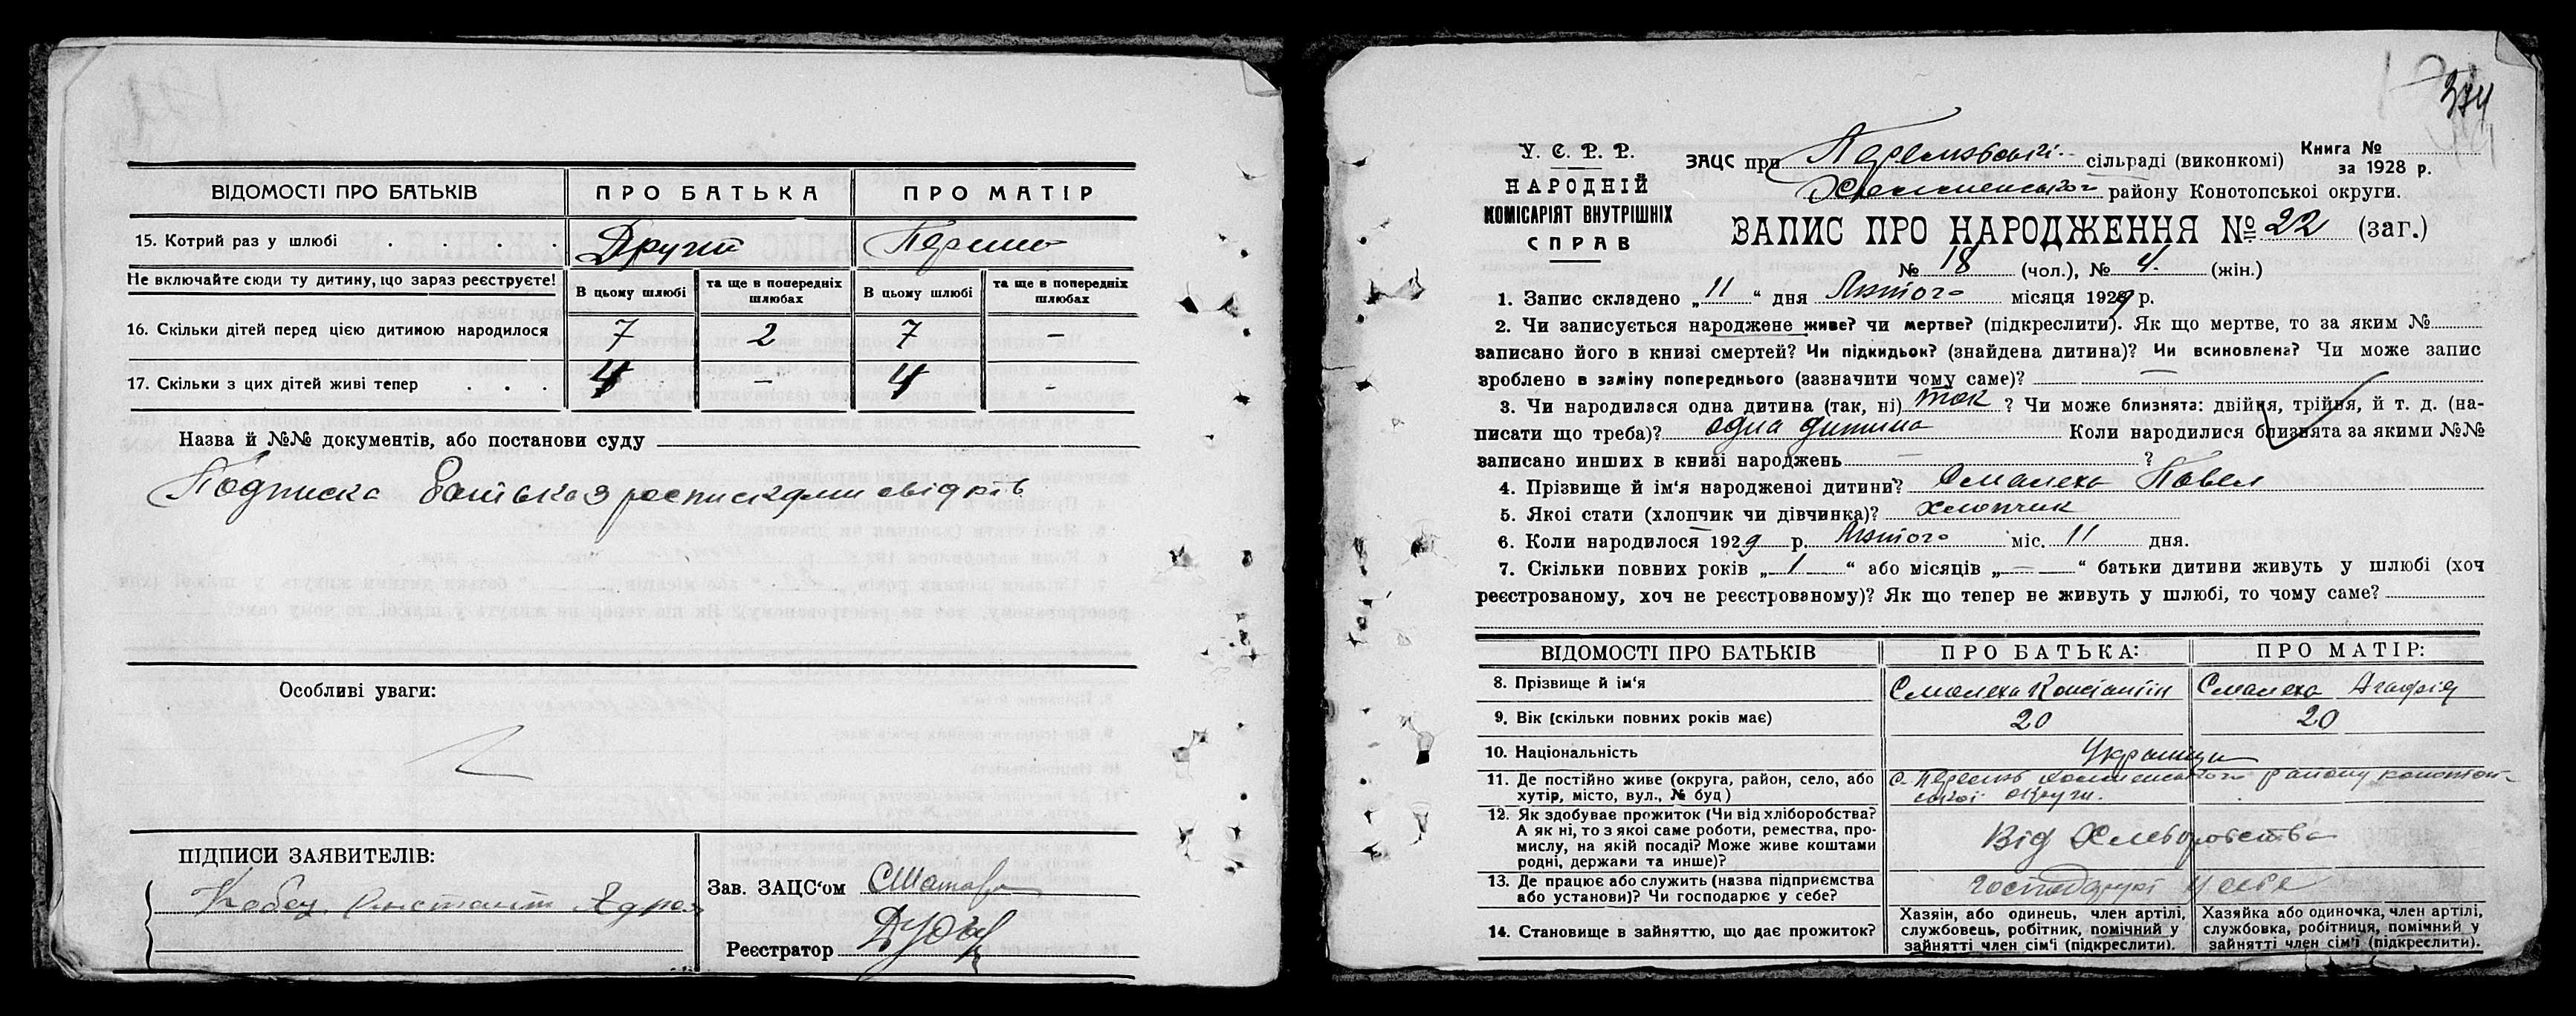 ВІДОМОСТІ ПРО БАТЬКІВ ПРО БАТЬКА ПРО МАТІР
15. Котрий раз у шлюбі . . . . Другий Перший
Не включайте сюди ту дитину, що зараз реєструєте! В цьому шлюбі та ще в попередніх шлюбах В цьому шлюбі та ще в попередніх шлюбах
16. Скільки дітей перед цією дитиною народилося 7 2 7 –
17. Скільки з цих дітей живі тепер . . . 4 – 4 –
Назва й №№ документів, або постанови суду
Подписка батька з росписками свідків
Особливі уваги:
ПІДПИСИ ЗАЯВИТЕЛІВ:
Зав. ЗАЦС‘ом
Реєстратор
374
У. С. Р. Р.
НАРОДНІЙ
КОМІСАРІЯТ ВНУТРІШНІХ
СПРАВ
ЗАЦС при сільраді (виконкомі) Книга №
за 1928 р.
району Конотопської округи.
ЗАПИС ПРО НАРОДЖЕННЯ № 22 (заг.)
№ 18 (чол.), № 4. (жін.)
1. Запис складено „11“ дня Лютого місяця 1929 р.
2. Чи записується народжене живе? чи мертве? (підкреслити). Як що мертве, то за яким №
записано його в книзі смертей? Чи підкидьок? (знайдена дитина)? Чи всиновлена? Чи може запис
зроблено в заміну попереднього (зазначити чому саме)? —
3. Чи народилася одна дитина (так, ні) так ? Чи може близнята: двійня, трійня, й т. д. (на-
писати що треба)? одна дитина Коли народилися близнята за якими №№
записано инших в книзі народжень — ?
4. Прізвище й ім‘я народженої дитини? Смалеха Павел
5. Якої стати (хлопчик чи дівчинка)? хлопчик
6. Коли народилося 1929 р. Лютого міс. 11 дня.
7. Скільки повних років „1“ або місяців „—“ батьки дитини живуть у шлюбі (хоч
реєстрованому, хоч не реєстрованому)? Як що тепер не живуть у шлюбі, то чому саме?
ВІДОМОСТІ ПРО БАТЬКІВ ПРО БАТЬКА: ПРО МАТІР:
8. Прізвище й ім‘я Смалеха Константін Смалеха Агафія
9. Вік (скільки повних років має) 20 20
10. Національність Українци
11. Де постійно живе (округа, район, село, або
хутір, місто, вул., № буд) району Конотоп-
ської округи.
12. Як здобуває прожиток (Чи від хліборобства?
А як ні, то з якої саме роботи, ремества, про-
мислу, на якій посаді? Може живе коштами
родні, держави та инше)? Від Хлеборобства
13. Де працює або служить (назва підприємства
або установи)? Чи господарює у себе? господарює у себе
14. Становище в зайняттю, що дає прожиток? Хазяїн, або одинець, член артілі,
службовець, робітник, помічний у
зайнятті член сім‘ї (підкреслити). Хазяйка або одиночка, член артілі,
службовка, робітниця, помічний у
зайнятті член сім‘ї (підкреслити).